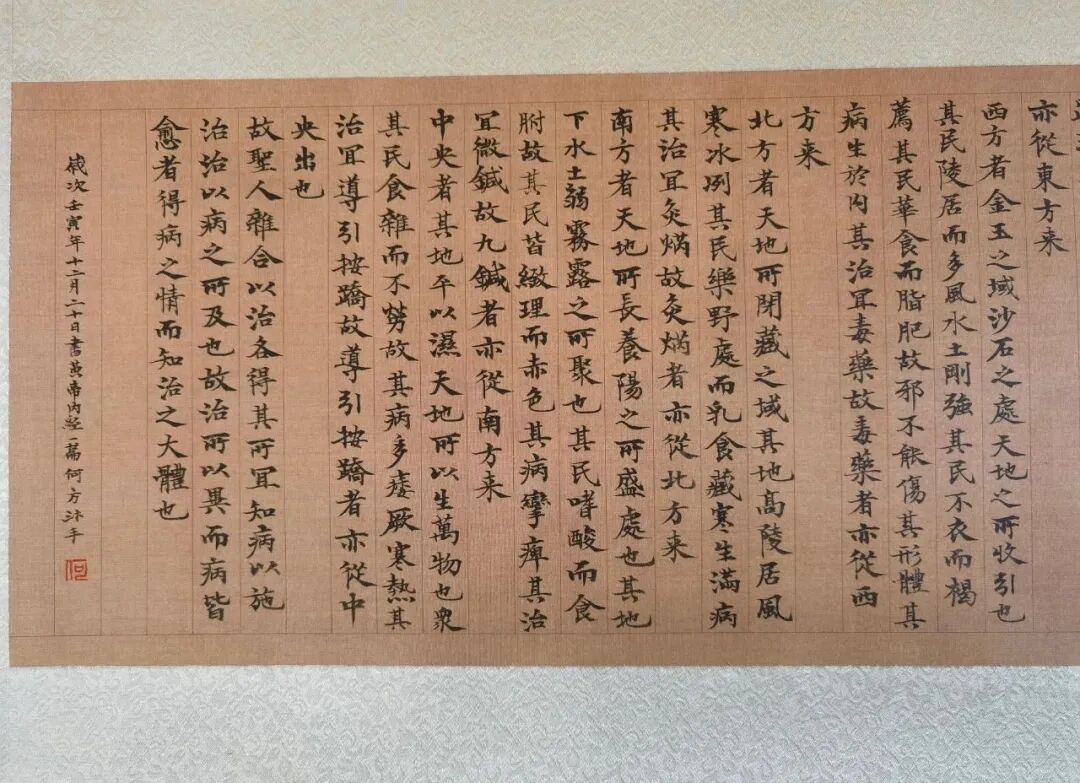 亦從東方来
西方者金玉之域沙石之處天地之所收引也
其民陵居而多風水土剛強其民不衣而褐
薦其民華食而脂肥故邪不能傷其形體其
病生於內其治冝毒藥故毒藥者亦從西
方来
北方者天地所閉藏之域其地高陵居風
寒冰冽其民樂野處而乳食藏寒生滿病
其治冝灸焫故灸焫者亦從北方来
南方者天地所長養陽之所盛處也其地
下水土弱霧露之所聚也其民嗜酸而食
胕故其民皆緻理而赤色其病攣痺其治
冝微鍼故九鍼者亦從南方来
中央者其地平以濕天地所以生萬物也衆
其民食雜而不勞故其病多痿厥寒熱其
治冝導引按蹻故導引按蹻者亦從中
央出也
故聖人雜合以治各得其所冝知病以施
治治以病之所及也故治所以異而病皆
愈者得病之情而知治之大體也
歲次壬寅年十二月二十日書黃帝內經一篇何方沐手
何